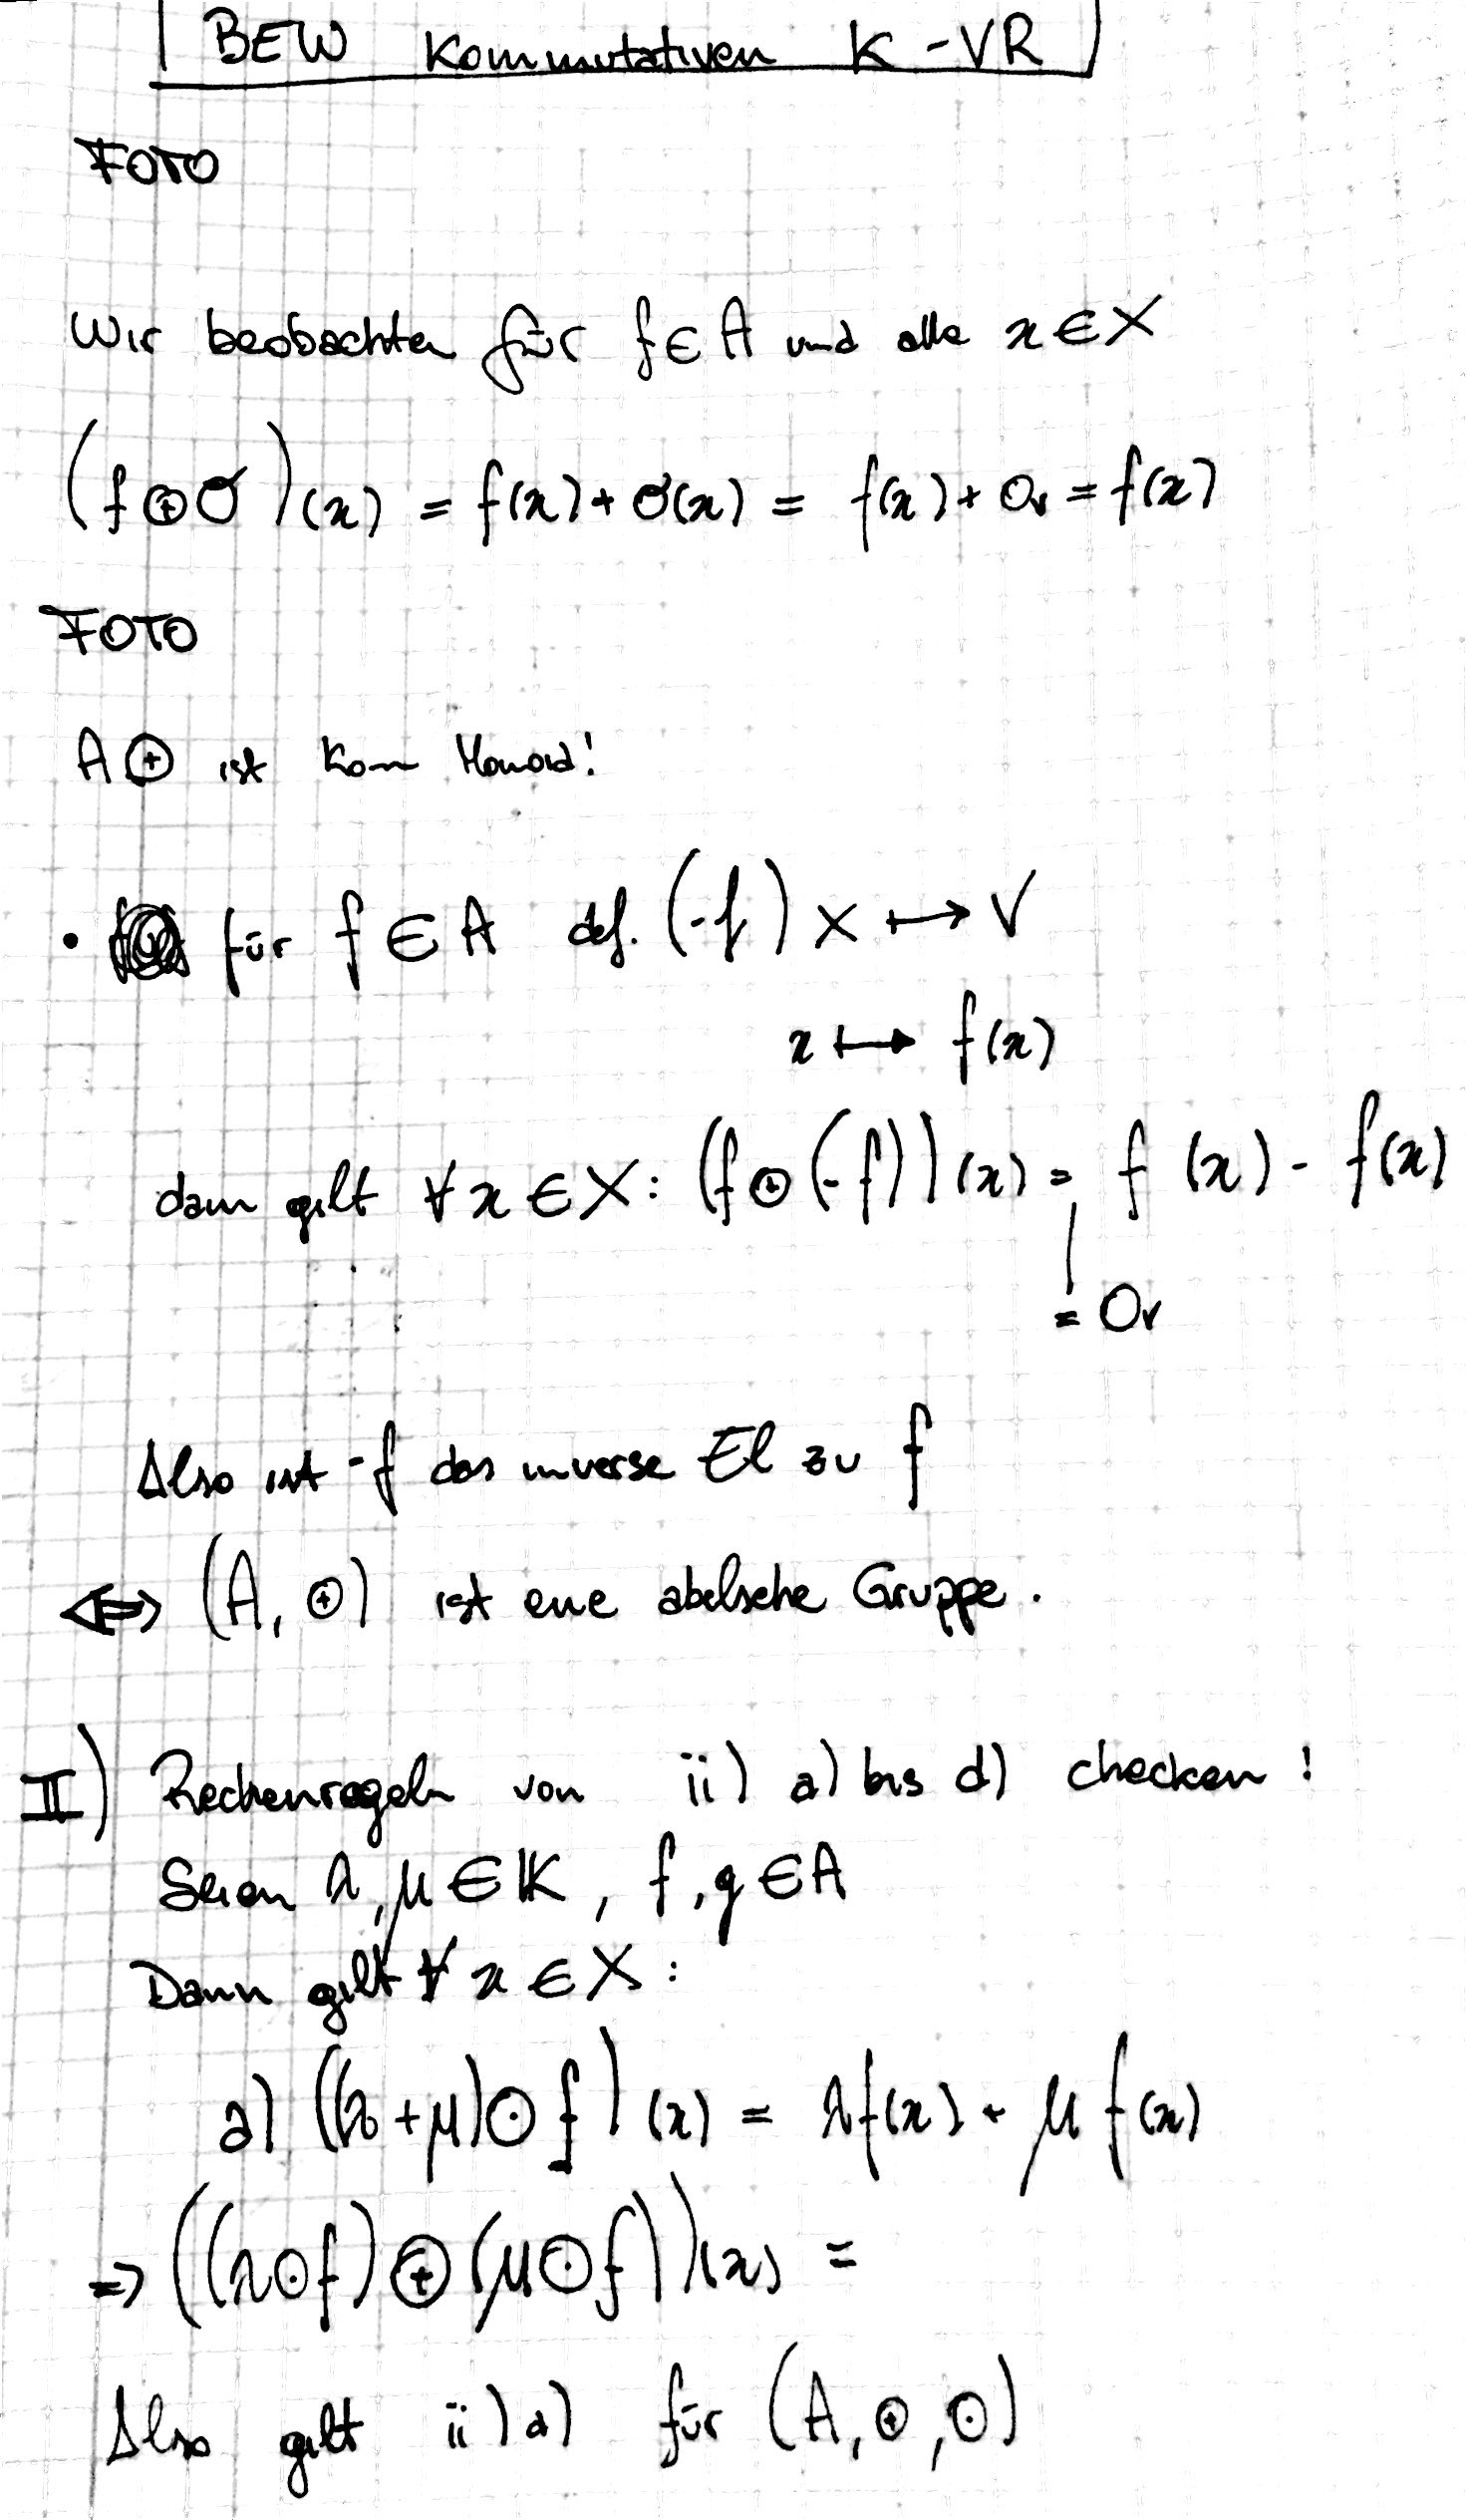 BEW Kommutativen K-VR
FOTO
Wir beobachten für f ∈ A und alle x ∈ X
(f ⊕ σ)(x) = f(x) + σ(x) = f(x) + 0v = f(x)
FOTO
A ⊕ ist Kom Monoid!
• für f ∈ A def. (-f) X ↦ V
x ↦ f(x)
dann gilt ∀ x ∈ X: (f ⊕ (-f))(x) = f(x) - f(x)
= 0v
Also ist -f das inverse El zu f
⇔ (A, ⊕) ist eine abelsche Gruppe.
II) Rechenregeln von ii) a) bis d) checken!
Seien λ, μ ∈ K, f, g ∈ A
Dann gilt ∀ x ∈ X:
a) ((λ + μ) ⊙ f)(x) = λf(x) + μ f(x)
⇒ ((λ ⊙ f) ⊕ (μ ⊙ f))(x) =
Also gilt ii) a) für (A, ⊕, ⊙)